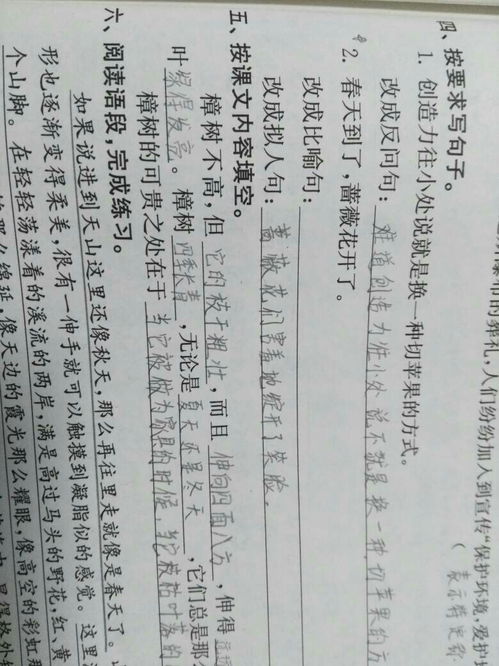 礼，人们纷纷加入到宣传“保护环境，爱护
（表示
四、按要求写句子。
1. 创造力往小处说就是换一种切苹果的方式。
改成反问句：难道创造力往小处说不就是换一种切苹果的方
2. 春天到了，蔷薇花开了。
改成比喻句：
改成拟人句：蔷薇花们害羞地绽开了笑脸。
五、按课文内容填空。
樟树不高，但它的枝干粗壮，而且伸向四面八方，伸得
叶绿得发亮。樟树四季长青，无论是夏天还是冬天，它们总是那么
樟树的可贵之处在于当它被做为家具的时候，当它被枯叶落的
六、阅读语段，完成练习。
如果说进到天山这里还像秋天，那么再往里走就像是春天了。
形也逐渐变得柔美，很有一伸手就可以触摸到凝脂似的感觉。这里
个山脚。在轻轻荡漾着的溪流的两岸，满是高过马头的野花，红、黄
那么绵延，像天边的霞光那么耀眼，像高空的彩虹那